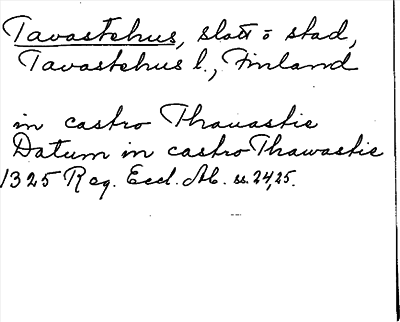 Tavastehus, slott o stad,
Tavastehus l., Finland
in castro Thauastie
Datum in castro Thawastie
1325 Reg. Eccl. Ab. ss. 24, 25.